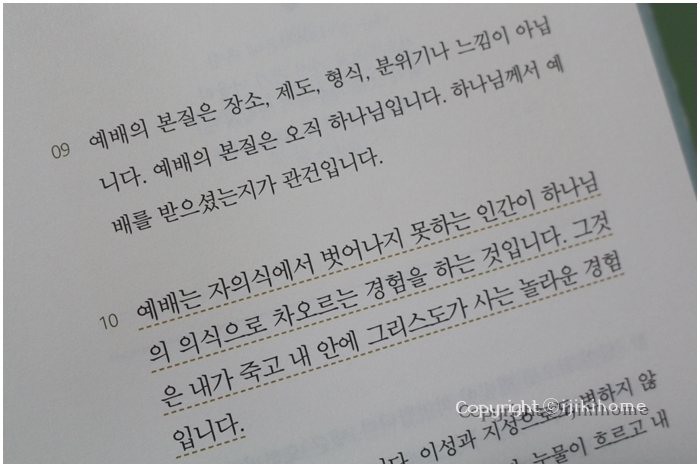 09 예배의 본질은 장소, 제도, 형식, 분위기나 느낌이 아닙
니다. 예배의 본질은 오직 하나님입니다. 하나님께서 예
배를 받으셨는지가 관건입니다.
10 예배는 자의식에서 벗어나지 못하는 인간이 하나님
의 의식으로 차오르는 경험을 하는 것입니다. 그것
은 내가 죽고 내 안에 그리스도가 사는 놀라운 경험
입니다.
이성과 지성으로 변하지 않
눈물이 흐르고 내